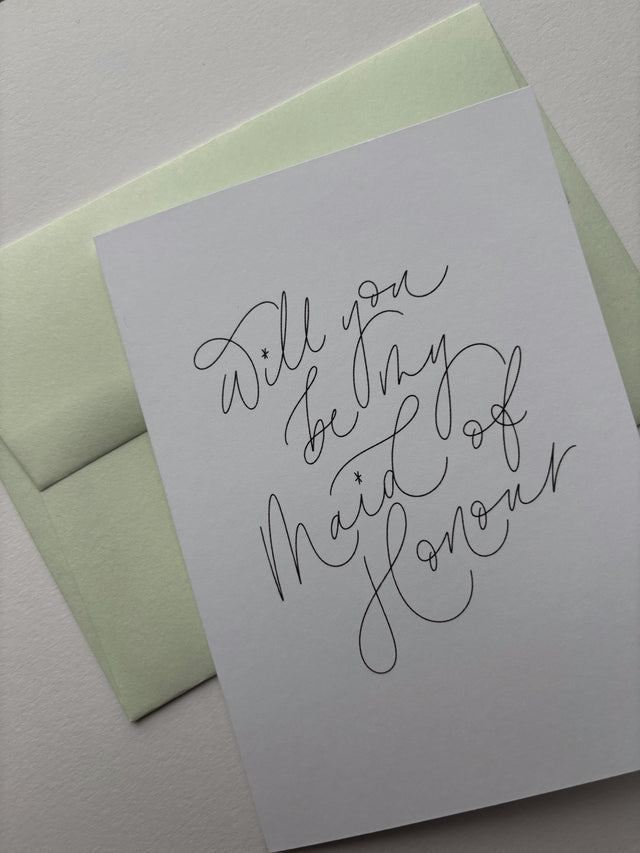 Will you
be my
Maid of
Honour